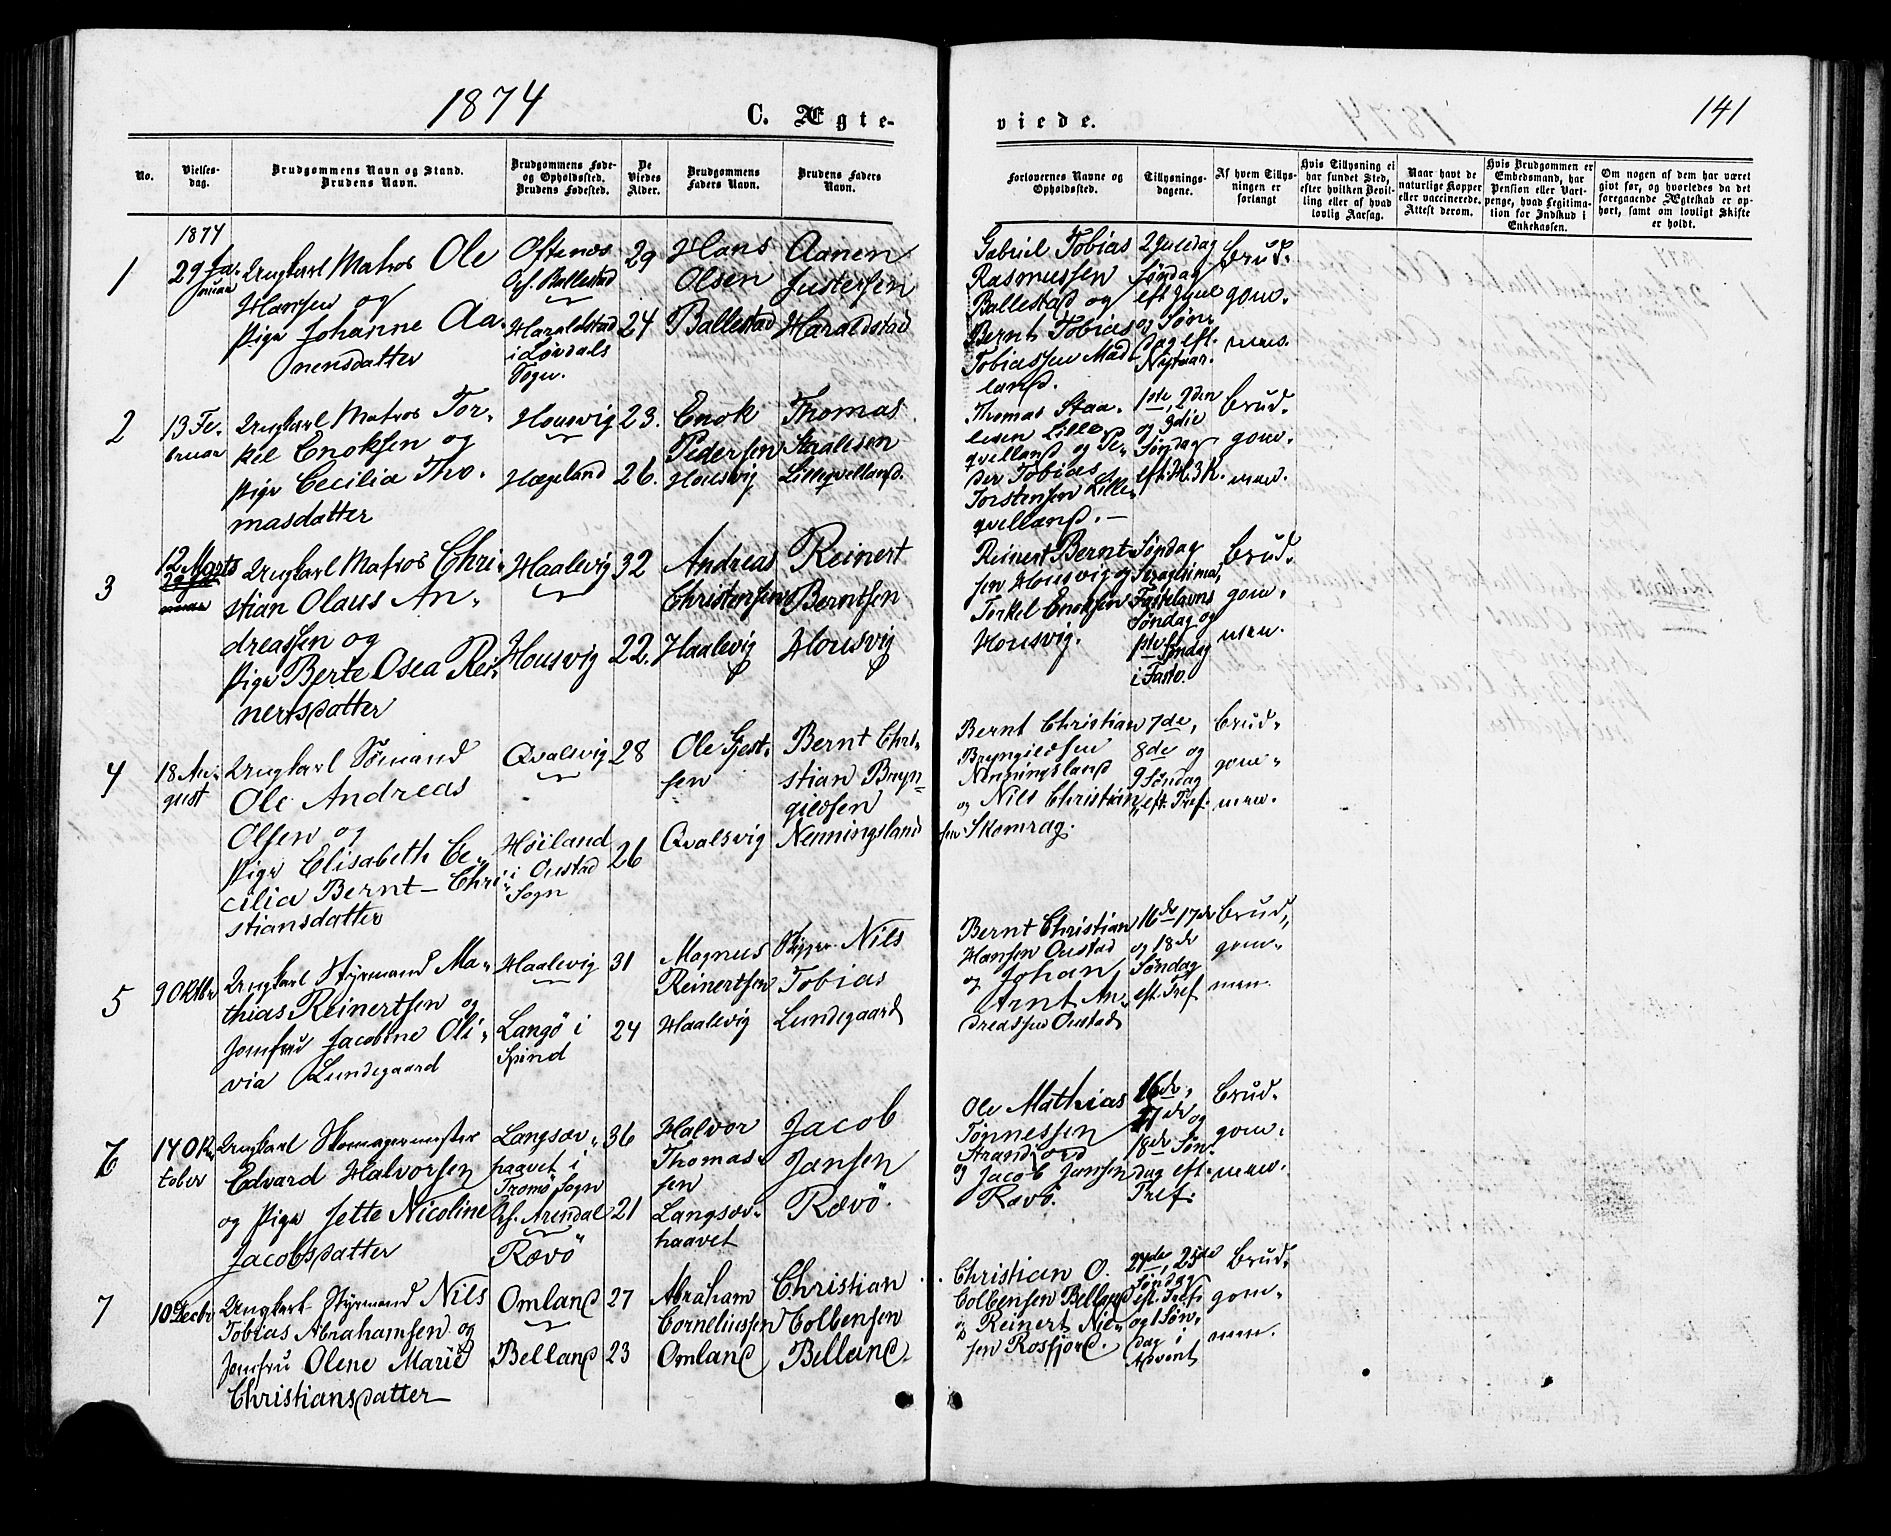 1874
C. Ægte-
viede.
141
No.
Vielses-
dag.
Brudgommens Navn og Stand.
Brudens Navn.
Brudgommens Føde-
og Opholdssted.
Brudens Fødested.
De
Viedes
Alder.
Brudgommens
Faders Navn.
Brudens Faders
Navn.
Forlovernes Navne og
Opholdssted.
Tillysnings-
dagene.
Af hvem Tillys-
ningen er
forlangt
Hvis Tillysning ei
har fundet Sted,
efter hvilken Bevil-
ling eller af hvad
lovlig Aarsag.
Naar havt de
naturlige Kopper
eller vaccinerede.
Attest derom.
Hvis Brudgommen er
Embedsmand, har
Pension eller Vart-
penge, hvad Legitima-
tion for Indskud i
Enkekassen.
Om nogen af dem har været
gift før, og hvorledes da det
foregaaende Ægteskab er op-
hørt, samt om lovligt Skifte
er holdt.
1874
1
29 Ja-
nuar
Ungkarl Matros Ole
Hansen og
Pige Johanne Aa-
nensdatter
Oftenes
Haraldstad
i Løvdals
Sogn.
29
24
Hans
Olsen
Ballestad
Aanen
Justersen
Haraldstad
Gabriel Tobias
Rasmussen
Ballestad og
Bernt Tobias
Tobiassen Mad-
land.
2 Juledag
Søndag
eft Jul
og Søn-
dag eft.
Nytaar.
brud-
gom-
men.
2
13 Fe-
bruar
Ungkarl Matros Tor-
kel Enoksen og
Pige Cecilia Tho-
masdatter
Housvig
Hægeland
23.
26.
Enok
Pedersen
Housvig
Thomas
Staalesen
Lilleqvelland.
Thomas Staa-
lesen Lille-
qvelland og Pe-
der Tobias
Torstensen Lille-
qvelland.—
1ste, 2den
og 3die
Søndag
eft. H. 3 K.
brud-
gom-
men.
3
12 Marts
Ungkarl Matros Chri-
stian Olaus An-
dreassen og
Pige Berte Osea Rei-
nertsdatter
Haalevig
Housvig
32
22.
Andreas
Christensen
Haalevig
Reinert
Berntsen
Housvig
Reinert Bernt-
sen Housvig og
Torkel Enoksen
Housvig.
Søndag
Sexagesima,
Fastelavns
Søndag og
1ste Søndag
i Faste.
brud-
gom-
men.
4
18 Au-
gust
Ungkarl Sømand
Ole Andreas
Olsen og
Pige Elisabeth Ce-
cilia Bernt-Chri-
stiansdatter
Qvalsvig
Høiland
i Oustad
Sogn
28
26
Ole Gjert-
sen
Qvalsvig
Bernt Chri-
stian Bryn-
gielsen
Nenningsland
Bernt Christian
Bryngielsen
Nenningsland
og Nils Christian-
sen Skomrag.
7de,
8de og
9 Søndag
eft. Tref.
brud-
gom-
men.
5
9 Oktbr
Ungkarl Styrmand Ma-
thias Reinertsen og
Jomfru Jacobine Oli-
via Lundegaard
Haalevig
Langø i
Spind
31
24
Magnus
Reinertsen
Haalevig
Skipper Nils
Tobias
Lundegaard
Bernt Christian
Hansen Oustad
og Johan
Arnt An-
dreassen Oustad
16de 17de
og 18de
Søndag
eft. Tref
brud-
gom-
men.
6
14 Ok-
tober
Ungkarl Skomagermester
Edvard Halvorsen
og Pige Jette Nicoline
Jacobsdatter
Langsæv-
haavet i
Tromø Sogn
Pgf. Arendal
Rævø
36
21
Halvor
Thomas-
sen
Langsæv-
haavet
Jacob
Jansen
Rævø.
Ole Mathias
Tønnessen
og Jacob Jansen
Rævø.
16de,
17de og
18de Søn-
dag eft.
Tref.
brud-
gom-
men.
7
10 Decbr
Ungkarl Styrmand Nils
Tobias Abrahamsen og
Jomfru Olene Marie
Christiansdatter
Omland
Belland
27
23
Abraham
Corneliussen
Omland
Christian
Colbensen
Belland.
Christian O.
Colbensen Belland
og Reinert Niel-
sen Rosfjord.
24de, 25de
Søndag
eft. Tref.
og 1 Søn-
dag i
Advent
brud-
gom-
men.